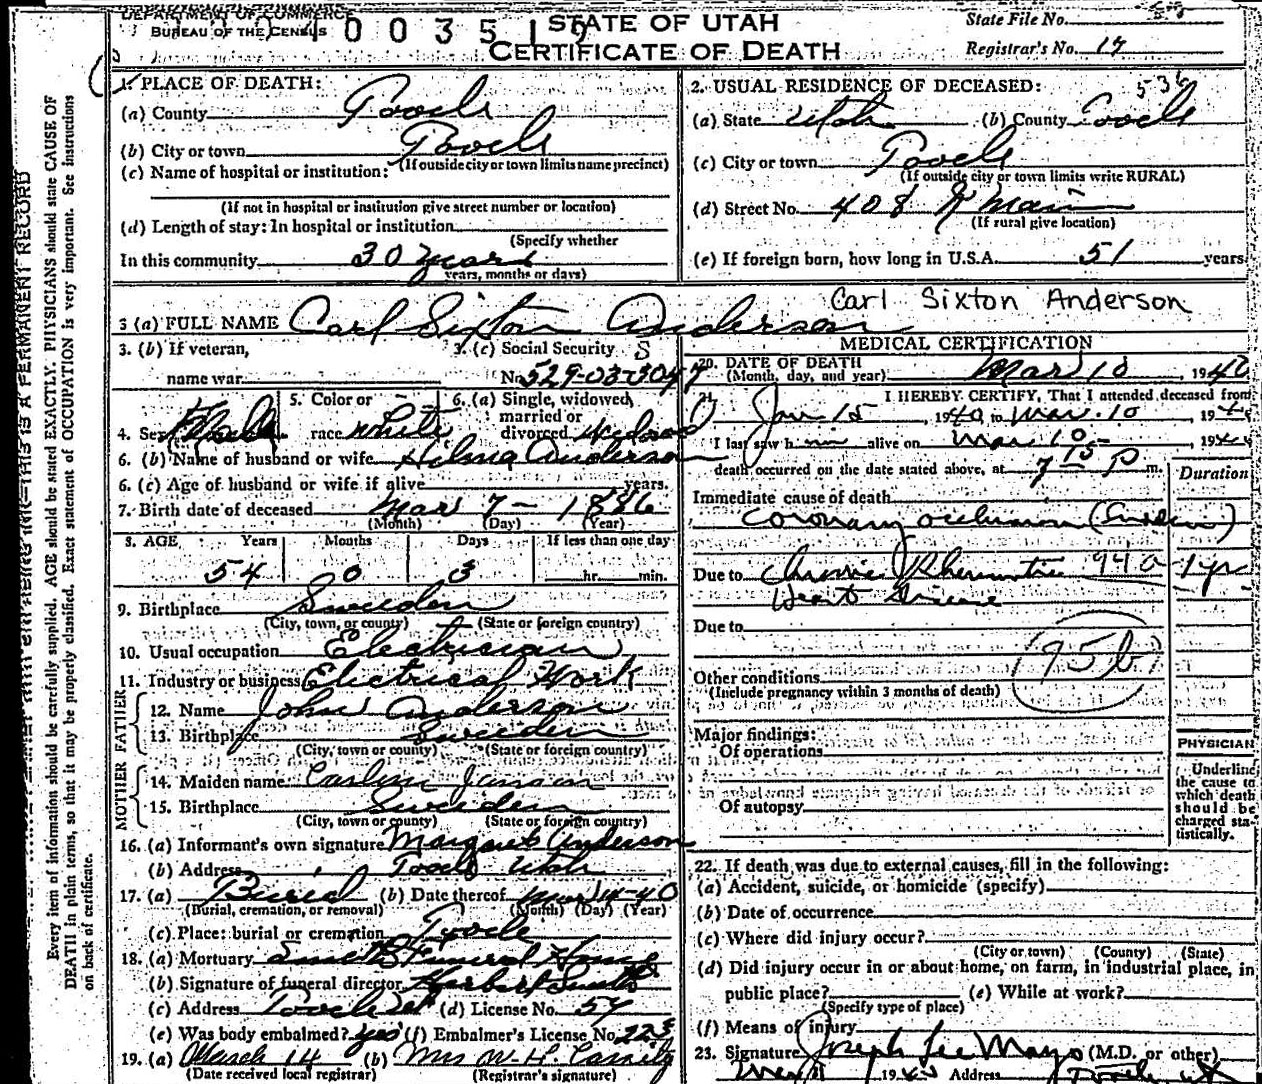 DEPARTMENT OF COMMERCE
BUREAU OF THE CENSUS
STATE OF UTAH
CERTIFICATE OF DEATH
State File No.
Registrar's No. 17
1. PLACE OF DEATH:
(a) County Tooele
(b) City or town Tooele
(If outside city or town limits name precinct)
(c) Name of hospital or institution:
(If not in hospital or institution give street number or location)
(d) Length of stay: In hospital or institution
(Specify whether
In this community 30 years
years, months or days)
2. USUAL RESIDENCE OF DECEASED: 536
(a) State Utah (b) County Tooele
(c) City or town Tooele
(If outside city or town limits write RURAL)
(d) Street No. 408 N Main
(If rural give location)
(e) If foreign born, how long in U.S.A. 51 years
3 (a) FULL NAME Carl Sixton Anderson
Carl Sixton Anderson
3. (b) If veteran,
name war
3. (c) Social Security
No. 529-03-3047
4. Sex Male
5. Color or
race White
6. (a) Single, widowed,
married or
divorced Widowed
6. (b) Name of husband or wife Hilma Anderson
6. (c) Age of husband or wife if alive years.
7. Birth date of deceased Mar 7 - 1886
(Month) (Day) (Year)
8. AGE Years Months Days If less than one day
54 0 3 hr. min.
9. Birthplace Sweden
(City, town, or county) (State or foreign country)
10. Usual occupation Electrician
11. Industry or business Electrical Work
FATHER
12. Name John Anderson
13. Birthplace Sweden
(City, town or county) (State or foreign country)
MOTHER
14. Maiden name
15. Birthplace Sweden
(City, town or county) (State or foreign country)
16. (a) Informant's own signature Margaret Anderson
(b) Address Tooele Utah
17. (a) Buried (b) Date thereof Mar 14-40
(Burial, cremation, or removal) (Month) (Day) (Year)
(c) Place: burial or cremation Tooele
18. (a) Mortuary Funeral Home
(b) Signature of funeral director Herbert
(c) Address Tooele Ut (d) License No. 57
(e) Was body embalmed? yes (f) Embalmer's License No. 223
19. (a) March 14 (b) Mrs W. H.
(Date received local registrar) (Registrar's signature)
MEDICAL CERTIFICATION
20. DATE OF DEATH
(Month, day, and year) Mar 10, 1940
21. I HEREBY CERTIFY, That I attended deceased from
Jan 15 1940 to Mar. 10, 1940
I last saw him alive on Mar 10, 1940
death occurred on the date stated above, at 7 15 P m.
Duration
Immediate cause of death
Coronary occlusion (Sudden)
Due to Chronic Rheumatic 94a 1 yr
Heart Disease
Due to
95b
Other conditions
(Include pregnancy within 3 months of death)
Major findings:
Of operations
Of autopsy
PHYSICIAN
Underline
the cause to
which death
should be
charged sta-
tistically.
22. If death was due to external causes, fill in the following:
(a) Accident, suicide, or homicide (specify)
(b) Date of occurrence
(c) Where did injury occur?
(City or town) (County) (State)
(d) Did injury occur in or about home, on farm, in industrial place, in
public place? (e) While at work?
(Specify type of place)
(f) Means of injury
23. Signature Joseph Lee Mayo (M.D. or other)
Mar 11 1940 Address Tooele Ut
THIS IS A PERMANENT RECORD
Every item of information should be carefully supplied. AGE should be stated EXACTLY. PHYSICIANS should state CAUSE OF
DEATH in plain terms, so that it may be properly classified. Exact statement of OCCUPATION is very important. See instructions
on back of certificate.